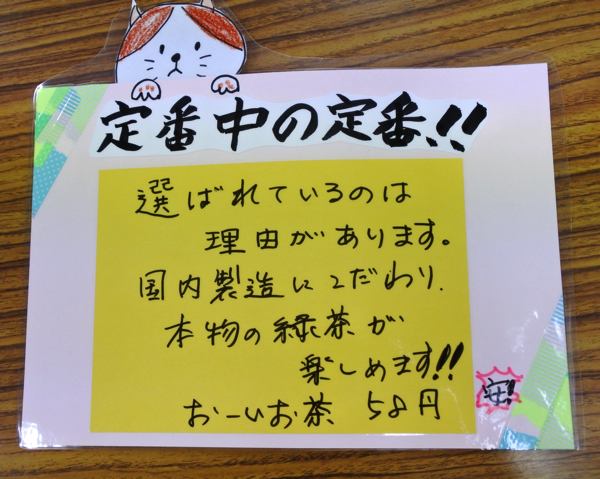 定番中の定番!!
選ばれているのは
理由があります。
国内製造にこだわり、
本物の緑茶が
楽しめます!!
おーいお茶 58円
安!